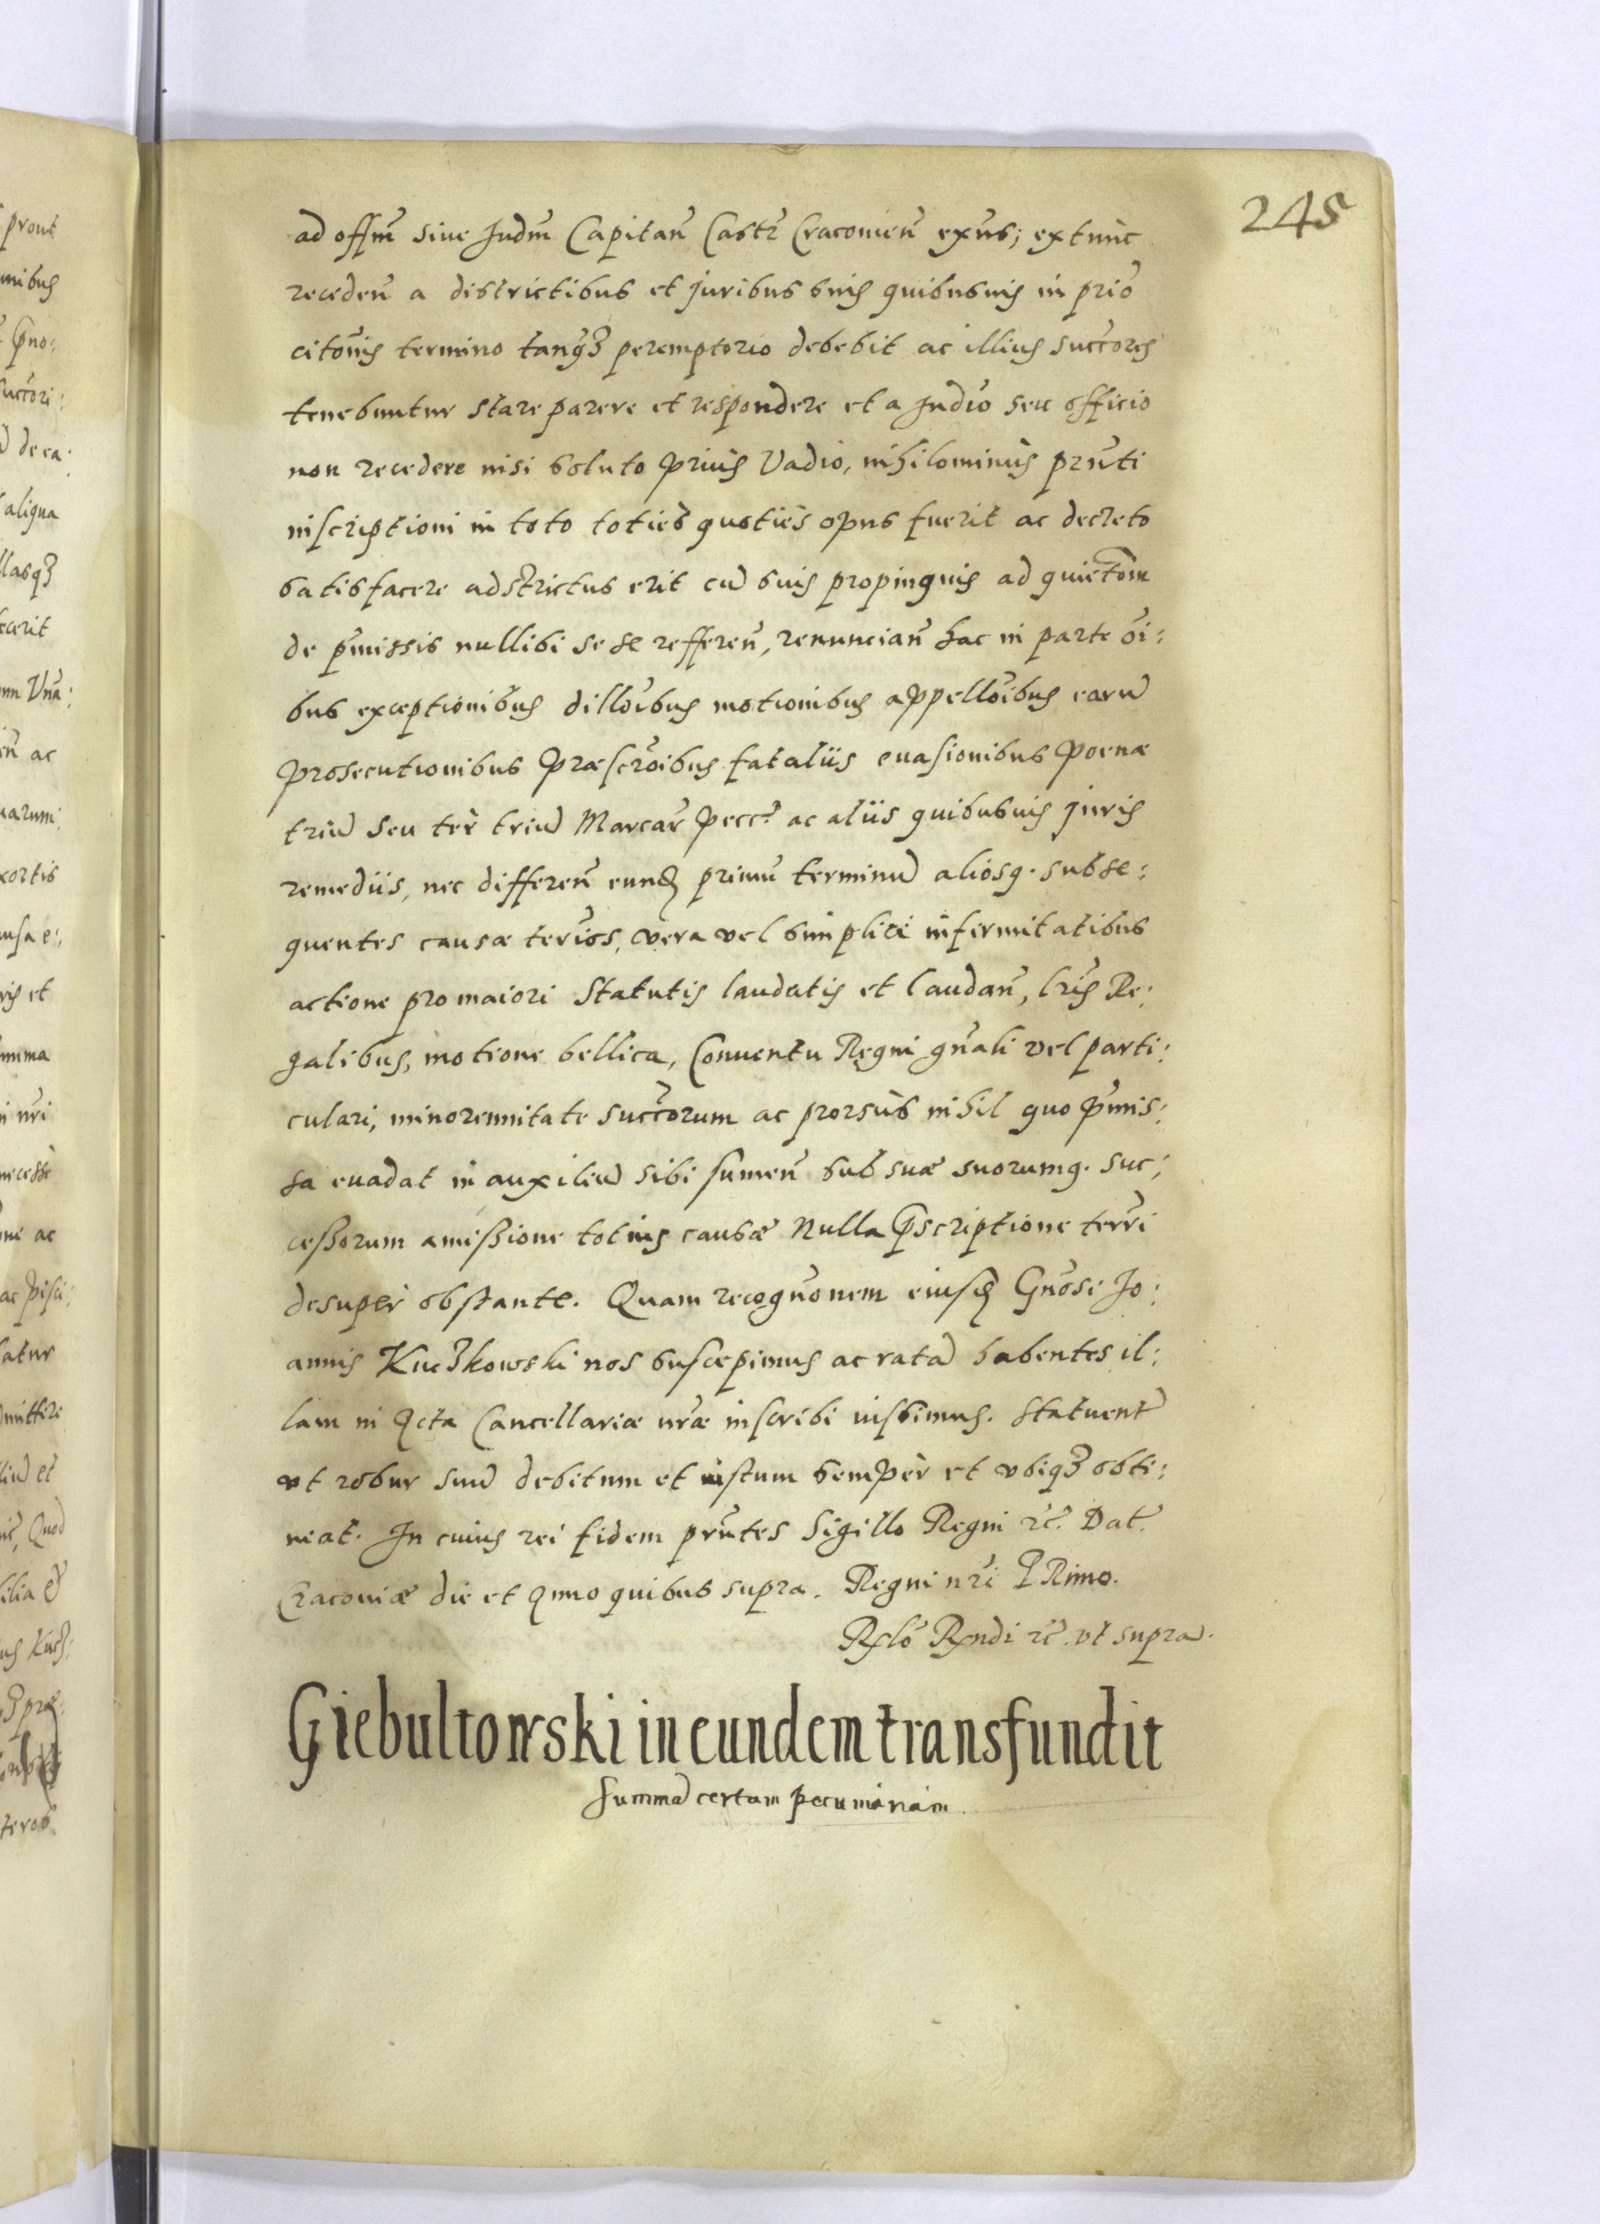 245
ad offm̃ siue Judm̃ Capitañ Castr̃ Cracouieñ exñs; extunc
recedeñ a districtibus et juribus suis quibusuis in prio͂
cito͂nis termino tanqʒ peremptorio debebit ac illius succ͂ores
tenebuntur stare parere et respondere et a Judio͂ seu officio
non recedere nisi soluto prius Vadio, nihilominus prñti
inscriptioni in toto toties quoties opus fuerit ac decreto
satisfacere adstrictus erit cũ suis propinquis ad quieto͂m
de p̃missis nullibi sese refferen̄, renuncian̄ hac in parte o͂i:
bus exceptionibus dillo͂ibus motionibus appello͂ibus earũ
prosecutionibus præscr͂oibus fataliis euasionibus poenæ
triũ seu ter triũ Marcar̃ pecc: ac aliis quibusuis juris
remediis, nec differeñ eund̃ primũ terminũ aliosq. subse:
quentes causæ ter͂ios, vera vel simplici infirmitatibus
actione pro maiori Statutis laudatis et laudañ, lr̃is Re:
galibus, motione bellica, Conuentu Regni gñali vel parti:
culari, minorennitate succ͂orum ac prorsus nihil quo p̃mis:
sa euadat in auxiliũ sibi sumeñ sub suæ suorumq. suc:
cessorum amissione totius causæ Nulla p̃scriptione terr̃i
desuper obstante. Quam recogno͂nem eiusd̃ Gño͂si Jo:
annis Kuczkowski nos suscepimus ac ratã habentes il:
lam in Acta Cancellariæ nr̃æ inscribi iussimus. Statuent̃
vt robur suũ debitum et iustum semper et vbiqʒ obti:
neat. In cuius rei fidem prñtes Sigillo Regni rc̃. Dat.
Cracouiæ die et Anno quibus supra. Regni nr̃i P Rimo.
Rslo͂ Rndi rc̃. vt supra.
Giebultowski in eundem transfundit
summã certam pecuniariam.